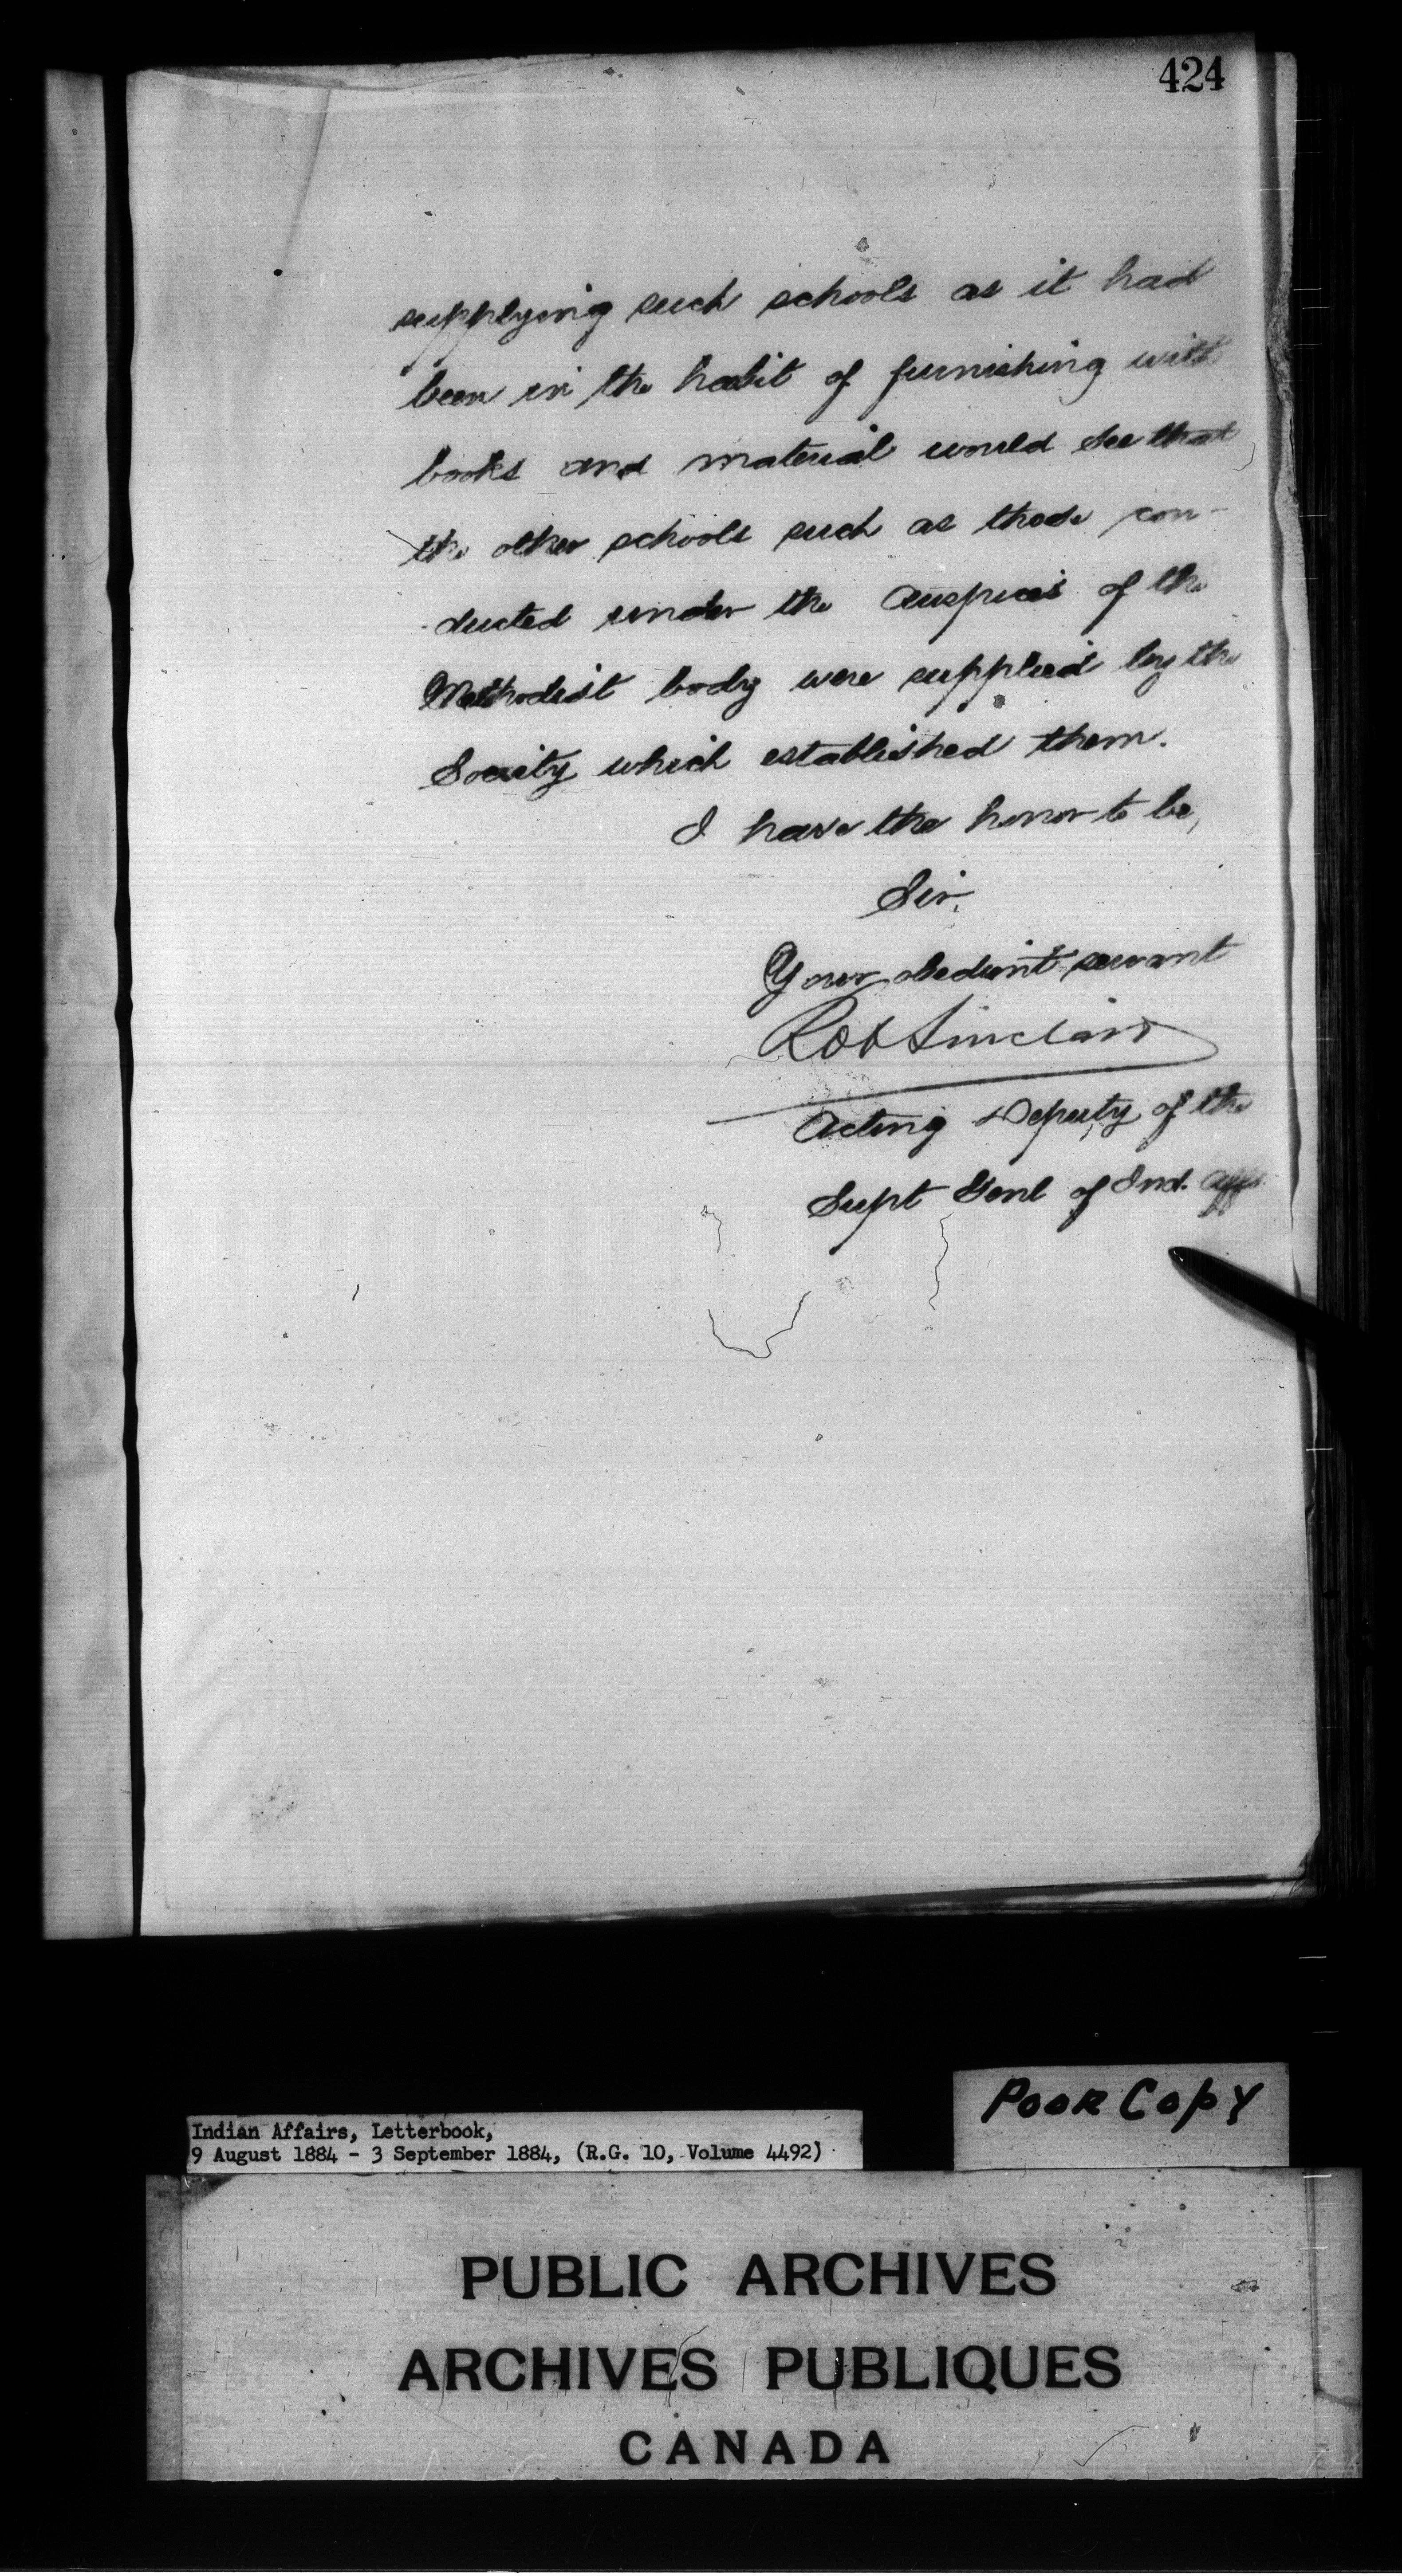 424
supplying such schools as it had
been in the habit of furnishing with
books and material would see that
the other schools such as those con-
ducted under the auspices of the
Methodist body were supplied by the
Society which established them.
I have the honor to be,
Sir,
Your obedient servant
Rob Sinclair
Acting Deputy of the
Supt Genl of Ind. Affs
POOR COPY
Indian Affairs, Letterbook,
9 August 1884 - 3 September 1884, (R.G. 10, Volume 4492)
PUBLIC ARCHIVES
ARCHIVES PUBLIQUES
CANADA